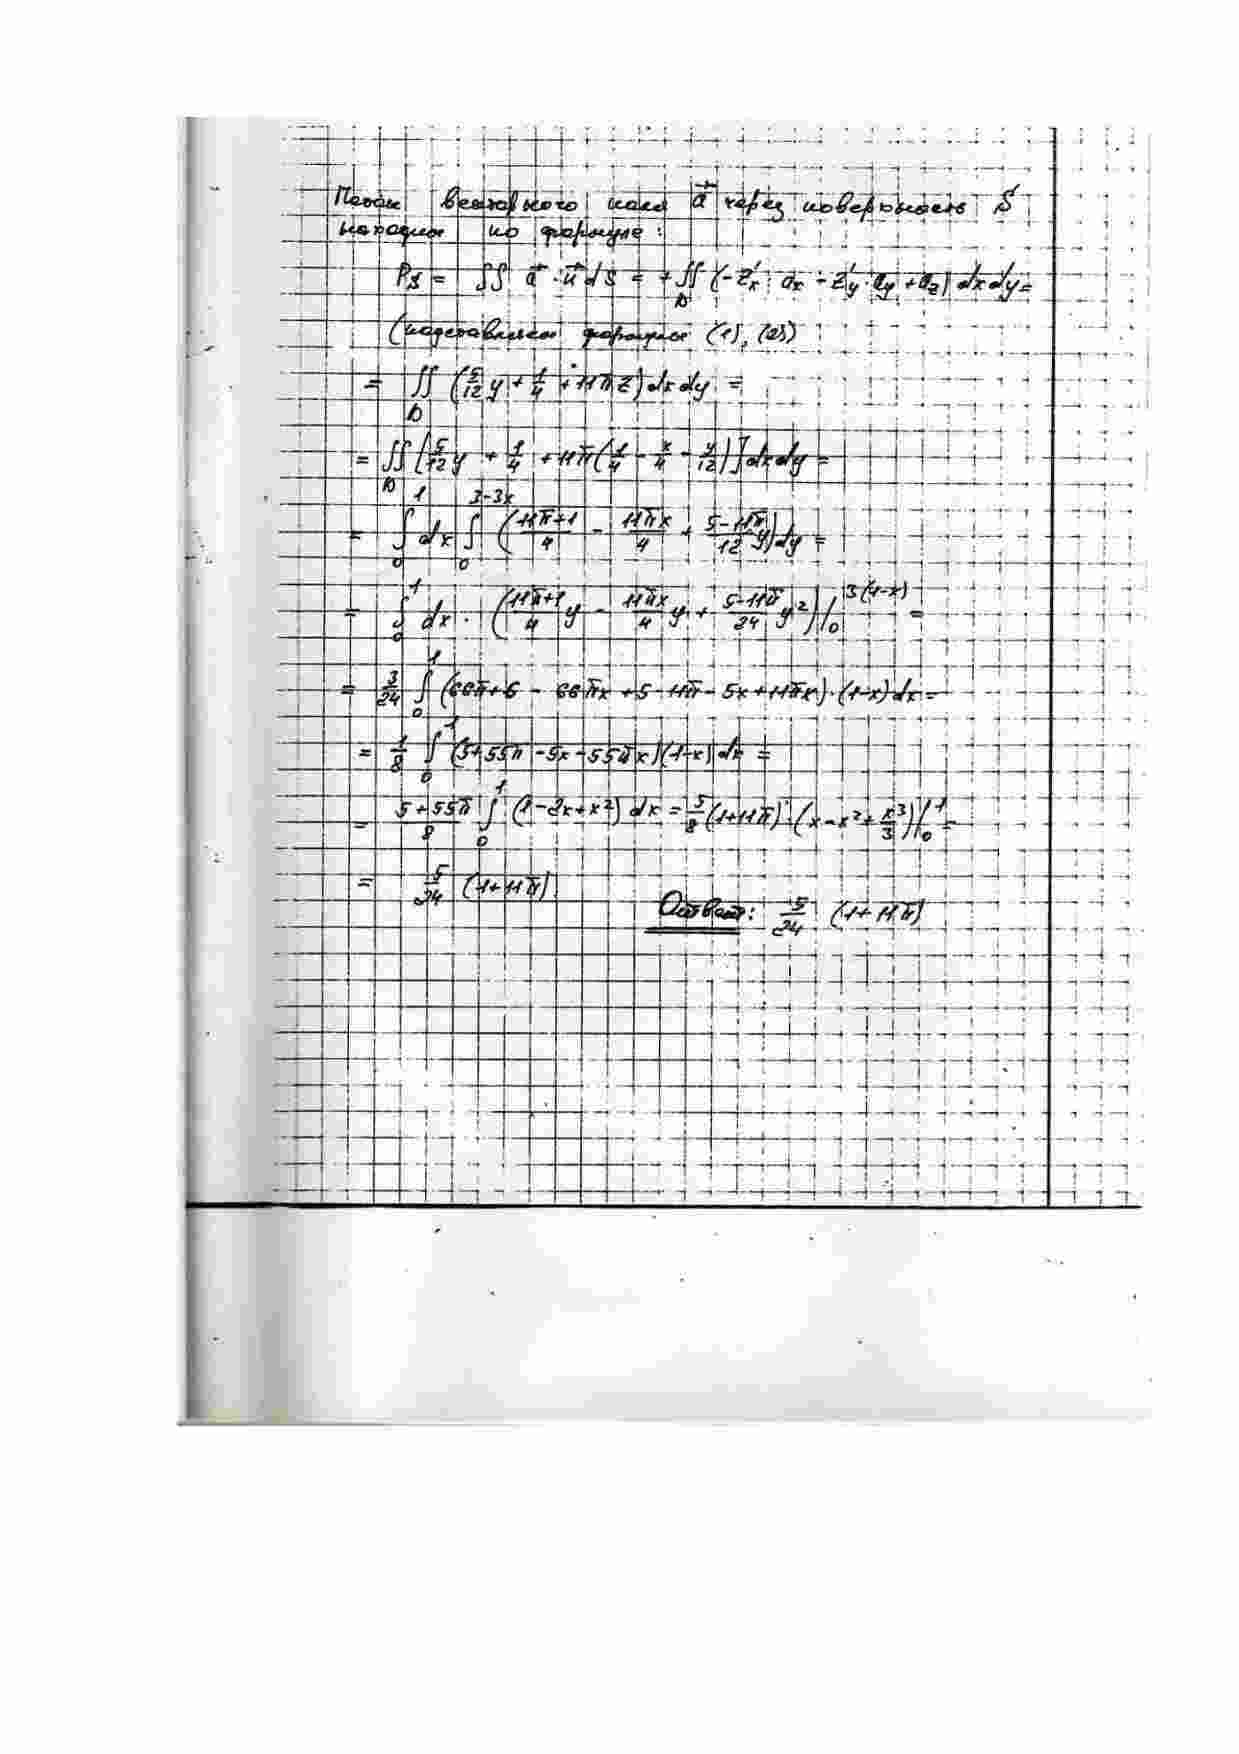 Поток векторного поля a⃗ через поверхность S
находим по формуле:
P_S = ∬ a⃗ · n⃗ dS = + ∬_D (-z'_x · a_x - z'_y · a_y + a_z) dx dy =
(подставляем формулы (1), (2))
= ∬_D (5/12 y + 1/4 + 11π z) dx dy =
= ∬_D [5/12 y + 1/4 + 11π (1/4 - x/4 - y/12)] dx dy =
= ∫_0^1 dx ∫_0^{3-3x} ((11π+1)/4 - 11πx/4 + (5-11π)/12 y) dy =
= ∫_0^1 dx · ((11π+1)/4 y - 11πx/4 y + (5-11π)/24 y²) |_0^{3(1-x)} =
= 3/24 ∫_0^1 (66π + 6 - 66πx + 5 - 11π - 5x + 11πx) · (1-x) dx =
= 1/8 ∫_0^1 (5 + 55π - 5x - 55πx)(1-x) dx =
= (5+55π)/8 ∫_0^1 (1 - 2x + x²) dx = 5/8 (1+11π) · (x - x² + x³/3) |_0^1 =
= 5/24 (1+11π).
Ответ: 5/24 (1+11π)